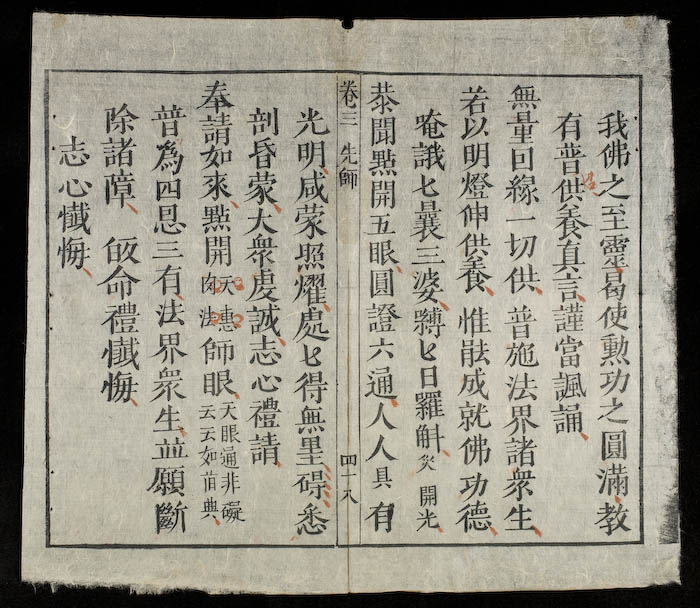 我佛之至靈曷使勲功之圓滿教
有普供養真言謹當諷誦
無量因緣一切供普施法界諸衆生
若以明燈伸供養惟䏻成就佛功德
唵誐𠤎曩三婆𬜉𠤎日羅斛 炗開光
恭聞㸃開五眼圓證六通人人具有
卷三 先師 四十八
光明咸蒙照耀處𠤎得無罣碍悉
剖昏蒙大衆虔誠志心禮請
奉請如來㸃開 天惠 肉法 師眼 天眼通非礙 云云如前典
普為四恩三有法界衆生並願斷
除諸障 皈命禮懺悔
志心懺悔